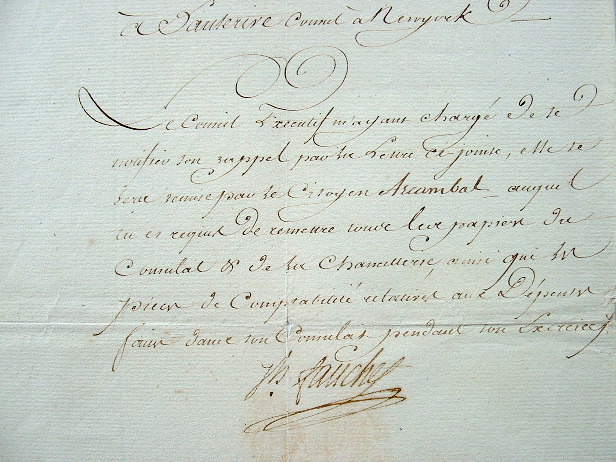 à Hauterive Consul à Newyork
Le Conseil Exécutif m'ayant chargé de te
notifier ton rappel par la Lettre ci-jointe, elle te
sera remise par le Citoyen Arcambal auquel
tu es requis de remettre tous les papiers du
Consulat & de la Chancellerie ainsi que les
pièces de Comptabilité relatives aux Dépenses
faites dans ton Consulat pendant ton Exercice
Jh Fauchet